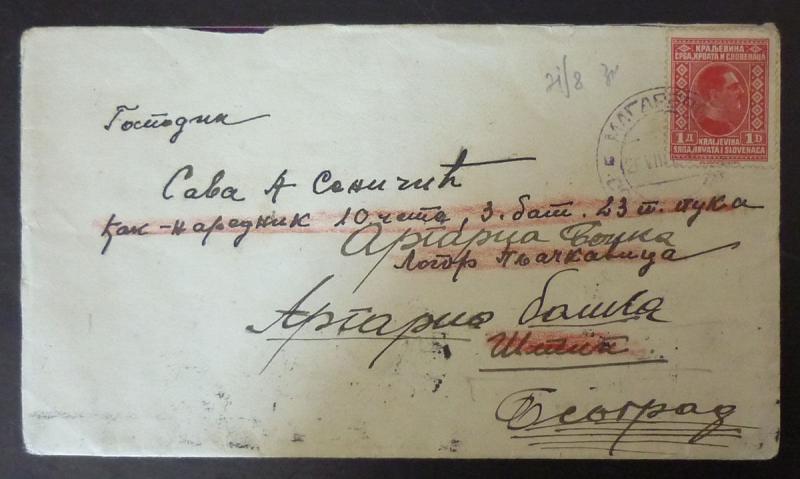 21/8
КРАЉЕВИНА
СРБА, ХРВАТА И СЛОВЕНАЦА
1 Д 1 D
KRALJEVINA
SRBA, HRVATA I SLOVENACA
Господин
Сава А Сеничић
Као-наредник 10 чета, 3. бат. 23 п. пука
Артарија
Логор Пљачкавица
Артарија
Штип
Београд